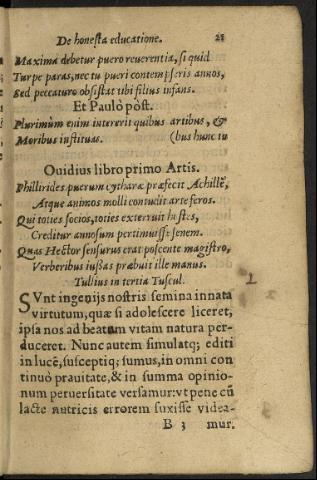 De honesta educatione. 21
Maxima debetur puero reuerentia, si quid
Turpe paras, nec tu pueri contempseris annos,
Sed peccaturo obsistat tibi filius infans.
Et Paulò pòst.
Plurimùm enim intererit quibus artibus, &
Moribus instituas. (bus hunc tu
Ouidius libro primo Artis.
Phillirides puerum cytharæ præfecit Achillẽ,
Atque animos molli contudit arte feros.
Qui toties socios, toties exterruit hostes,
Creditur annosum pertimuisse senem.
Quas Hector sensurus erat poscente magistro,
Verberibus iussas præbuit ille manus.
Tullius in tertia Tuscul.
SVnt ingenijs nostris semina innata
virtutum, quæ si adolescere liceret,
ipsa nos ad beatam vitam natura per-
duceret. Nunc autem simulatq; editi
in lucẽ, susceptiq; sumus, in omni con
tinuò prauitate, & in summa opinio-
num peruersitate versamur: vt pene cũ
lacte nutricis errorem suxisse videa-
B 3 mur.